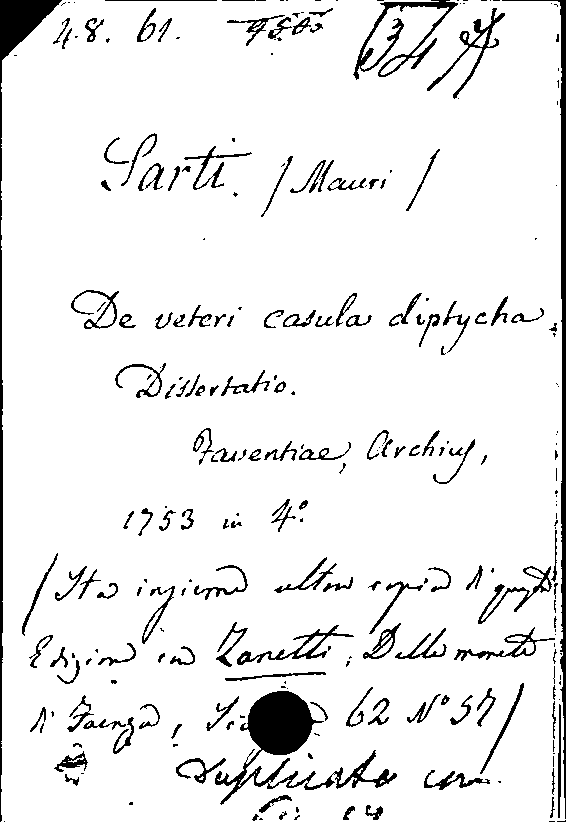 48. 61. 9505 34
Sarti. (Mauri)
De veteri casula diptycha.
Dissertatio.
Faventiae, Archius,
1753 in 4º.
(Sta insieme altra copia di questa
Edizione con Zanetti, Delle monete
di Faenza, 62 Nº 57)
Duplicato con